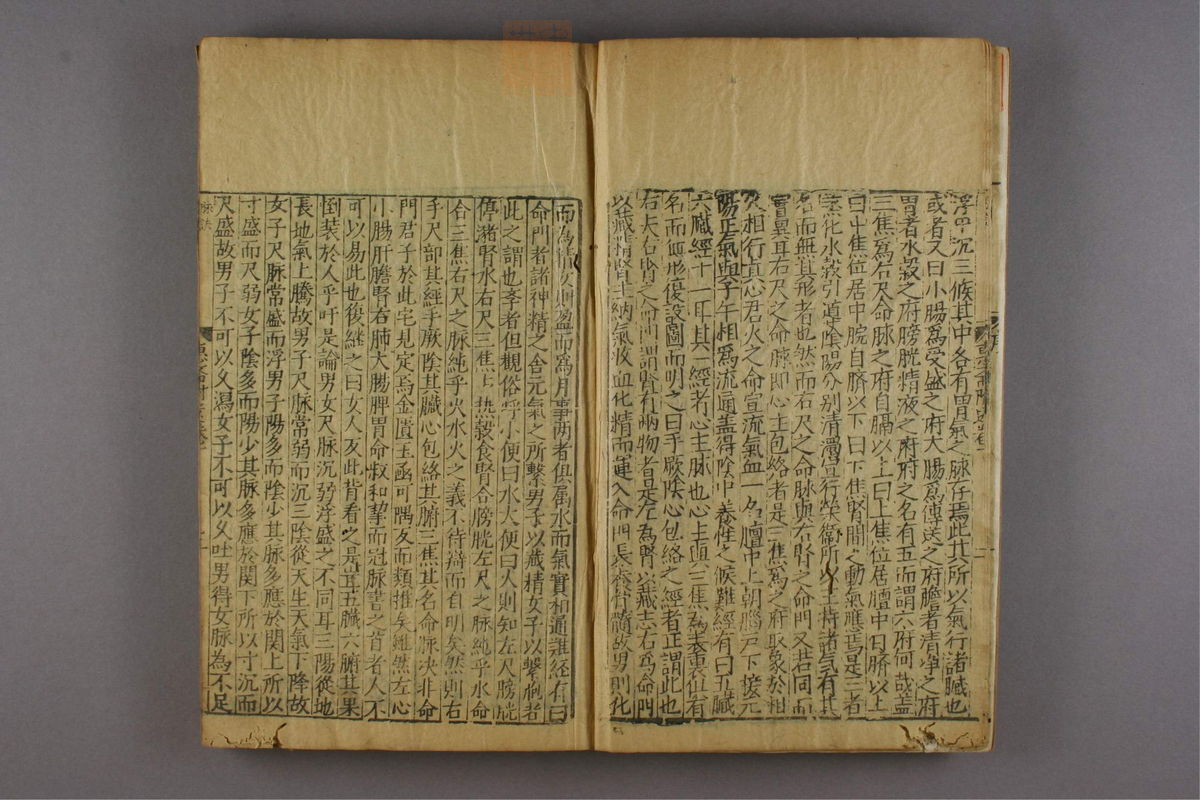 浮中沉三候其中各有胃氣之脉存焉此其所以氣行諸臟也
或者又曰小腸爲受盛之府大腸爲傳送之府膽者清淨之府
胃者水穀之府膀胱精液之府府之名有五而謂六府何哉蓋
三焦爲右尺命脉之府自膈以上曰上焦位居膻中曰臍以上
曰中焦位居中脘自臍以下曰下焦腎間之動氣應焉是三者
熏化水穀引導陰陽分别清濁宣行榮衛所以主持諸氣有其
名而無其形者也然而右尺之命脉與右腎之命門又若同而
實異耳右尺之命脉即心主包絡者是三焦爲之府取象於相
火相行真心君火之命宣流氣血一名膻中上朝腦戶下接元
陽正氣與子午相爲流通蓋得陰中養性之候難經有曰五臟
六臟經十一耳其一經者心主脉也心主與三焦爲表裏俱有
名而無形復設圖而明之曰手厥陰心包絡之經者正謂此也
右夫右腎之命門謂腎有兩物者是左爲腎以藏志右爲命門
以藏精腎主納氣收血化精而運入命門長齋忖隨故男則化
而爲精女則盈而爲月事兩者俱属水而氣實相通難經有曰
命門者諸神精之舍元氣之所繫男子以藏精女子以繫胞者
此之謂也孝者但觀俗呼小便曰水大便曰人則知左尺膀胱
停潴腎水右尺三焦上熱穀食腎合膀胱左尺之脉純乎水命
合三焦右尺之脉純乎火水火之義不待辯而自明矣然則右
手尺部其經手厥陰其臟心包絡其腑三焦其名命脉决非命
門君子於此宅見定焉金匱玉函可隅反而類推矣雖然左心
小腸肝膽腎右肺大腸脾胃命叔和挈而冠脉書之首者人不
可以易此也後継之曰女人反此背看之是豈五臟六腑其果
倒裝於人乎吁是論男女尺脉沉弱浮盛之不同耳三陽從地
長地氣上騰故男子尺脉常弱而沉三陰從天生天氣下降故
女子尺脉常盛而浮男子陽多而陰少其脉多應於関上所以
寸盛而尺弱女子陰多而陽少其脉多應於関下所以寸沉而
尺盛故男子不可以久瀉女子不可以久吐男得女脉為不足